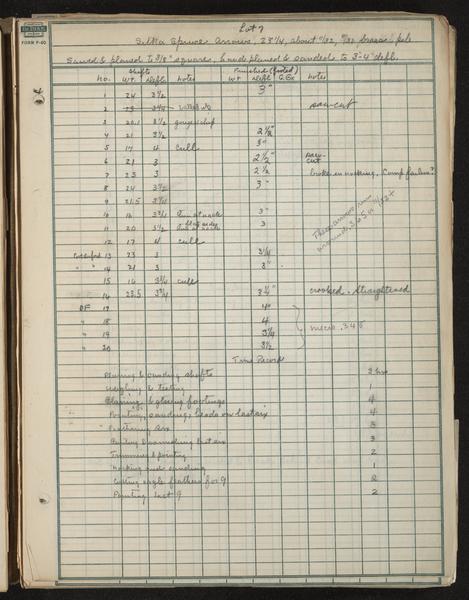 FORM P-60
Lot 7
Sitka Spruce Arrows, 23 1/4, about 11/32
Sawed & planed to 3/8" square, hand planed & sanded to 3"-4" defl.
Shafts Finished (footed)
No. Wt. Defl. Notes Wt Defl Notes
1 24 3 1/2 3"
2 saw-cut
3 20.1 3 1/2 gouge/chip
4 21 3 1/2 2 1/2"
5 17 4 cull 3"
6 21 3 2 1/2" saw-cut
7 23 3 2 1/2 broke in nocking, Comp. failure?
8 24 3 1/2 3"
9 21.5 3 3/4
10 16 3 3/4 3"
11 20 3 1/2 3
12 17 4 cull
13 23 3 3 1/4
14 21 3 3"
15 16 3 3/4 cull
16 23.5 3 3/4 3 1/4" crooked. Straightened
DF 17 4"
" 18 4 micro .345
" 19 3 3/4
" 20 3 1/2
Time Record
Planing & sanding shafts 2 hrs
Weighing & testing 1
Planing & gluing footings 4
4
Feathering six 3
3
Trimming & painting 2
Nocking and sanding 1
Cutting feathers for 9 2
Painting last 9 2